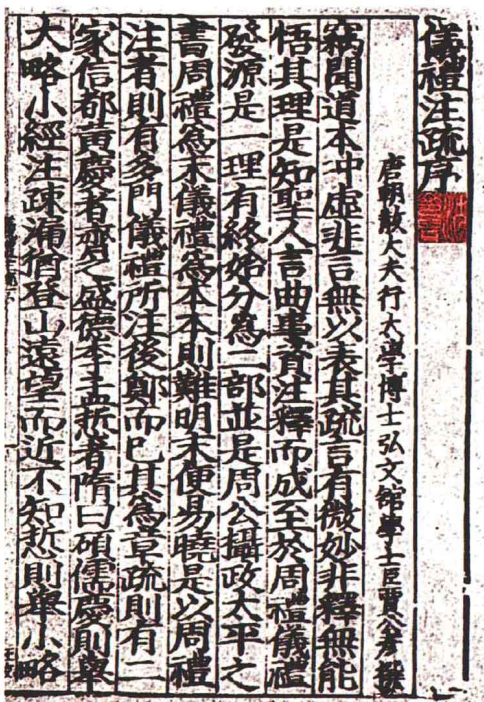 儀禮注疏序
唐朝散大夫行大學博士弘文館學士臣賈公彥撰
竊聞道本沖虛非言無以表其疏言有微妙非釋無能
悟其理是知聖人言曲事資注釋而成至於周禮儀禮
發源是一理有終始分爲二部並是周公攝政太平之
書周禮爲末儀禮爲本本則難明末便易曉是以周禮
注者則有多門儀禮所注後鄭而已其爲章疏則有二
家信都黃慶者齊之盛德李孟悊者隋曰碩儒慶則舉
大略小經注疎漏猶登山遠望而近不知悊則舉小略